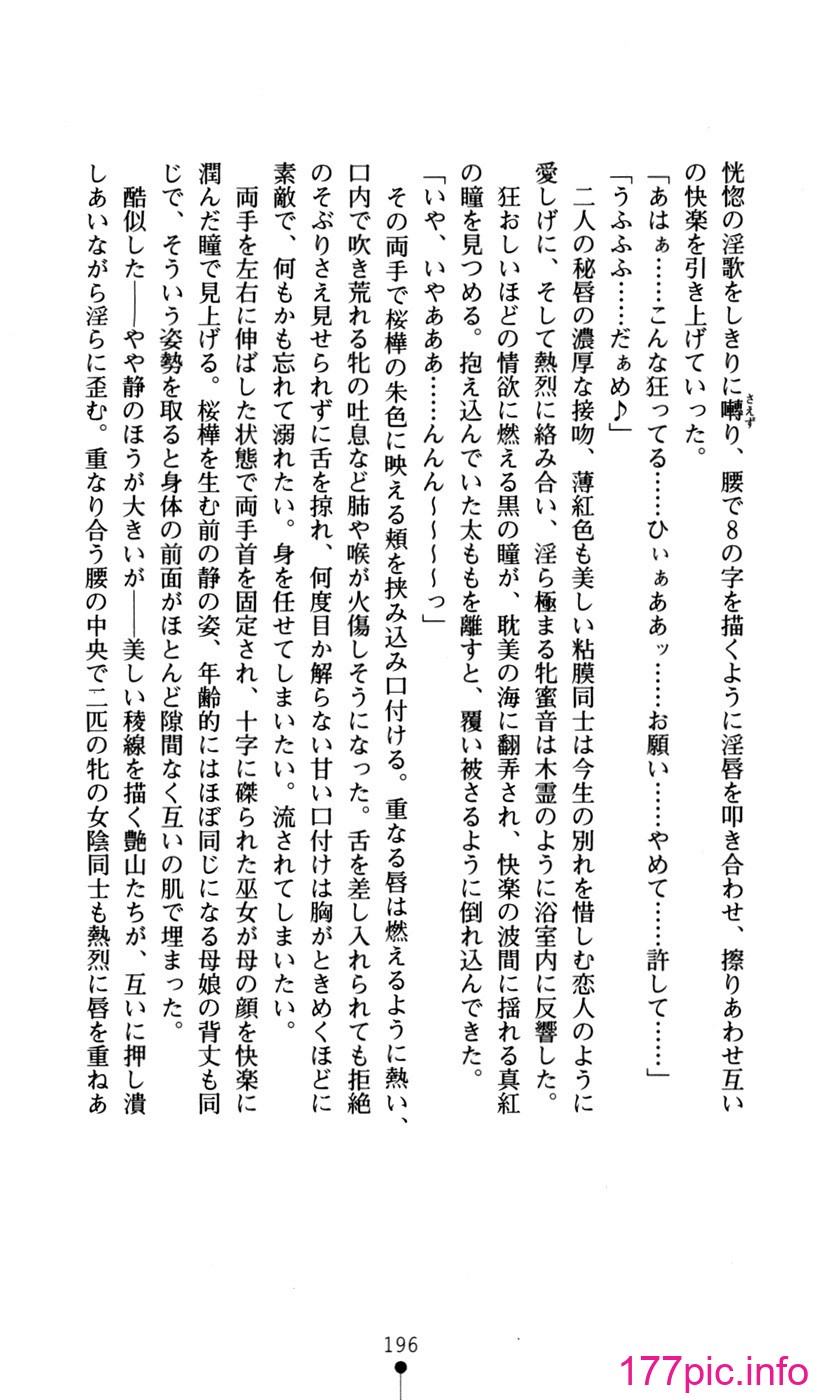 恍惚の淫歌をしきりに囀り、腰で８の字を描くように淫唇を叩き合わせ、擦りあわせ互い
さえず
の快楽を引き上げていった。
「あはぁ……こんな狂ってる……ひぃぁああッ……お願い……やめて……許して……」
「うふふふ……だぁめ♪」
二人の秘唇の濃厚な接吻、薄紅色も美しい粘膜同士は今生の別れを惜しむ恋人のように
愛しげに、そして熱烈に絡み合い、淫ら極まる牝蜜音は木霊のように浴室内に反響した。
狂おしいほどの情欲に燃える黒の瞳が、耽美の海に翻弄され、快楽の波間に揺れる真紅
の瞳を見つめる。抱え込んでいた太ももを離すと、覆い被さるように倒れ込んできた。
「いや、いやあああ……んんん～～～～っ」
その両手で桜樺の朱色に映える頬を挟み込み口付ける。重なる唇は燃えるように熱い、
口内で吹き荒れる牝の吐息など肺や喉が火傷しそうになった。舌を差し入れられても拒絶
のそぶりさえ見せられずに舌を掠れ、何度目か解らない甘い口付けは胸がときめくほどに
素敵で、何もかも忘れて溺れたい。身を任せてしまいたい。流されてしまいたい。
両手を左右に伸ばした状態で両手首を固定され、十字に磔られた巫女が母の顔を快楽に
潤んだ瞳で見上げる。桜樺を生む前の静の姿、年齢的にはほぼ同じになる母娘の背丈も同
じで、そういう姿勢を取ると身体の前面がほとんど隙間なく互いの肌で埋まった。
酷似した――やや静のほうが大きいが――美しい稜線を描く艶山たちが、互いに押し潰
しあいながら淫らに歪む。重なり合う腰の中央で二匹の牝の女陰同士も熱烈に唇を重ねあ
196
177pic.info